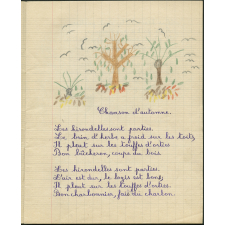 Chanson d'automne.
Les hirondelles sont parties.
Le brin d'herbe a froid sur les toits,
Il pleut sur les touffes d'orties
Bon bûcheron, coupe du bois
Les hirondelles sont parties.
L'air est dur, le logis est bon,
Il pleut sur les touffes d'orties
Bon charbonnier, fais du charbon.